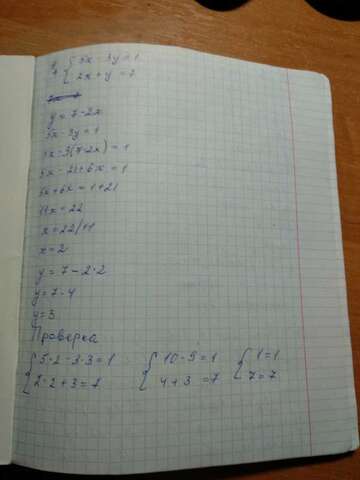 { 5x - 3y = 1
{ 2x + y = 7
y = 7 - 2x
5x - 3y = 1
5x - 3(7-2x) = 1
5x - 21 + 6x = 1
5x + 6x = 1 + 21
11x = 22
x = 22/11
x = 2
y = 7 - 2·2
y = 7 - 4
y = 3
Проверка
{ 5·2 - 3·3 = 1 { 10 - 9 = 1 { 1 = 1
{ 2·2 + 3 = 7 { 4 + 3 = 7 { 7 = 7